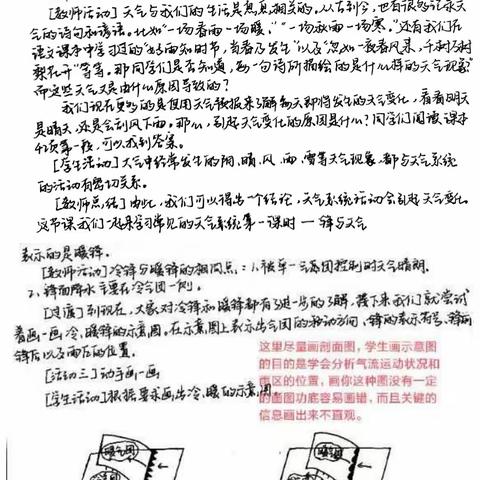 [教师活动] 天气与我们的生活是息息相关的。从古到今，也有很多记录天
气的诗句和谚语。比如"一场春雨一场暖，""一场秋雨一场寒。"还有我们在
语文课本中学习过的"好雨知时节，当春乃发生"以及"忽如一夜春风来，千树万树
梨花开"等等。那同学们是否知道，每一句诗所描绘的是什么样的天气现象
而这些天气又是由什么原因导致的？
我们现在更多的是使用天气预报来了解每天即将发生的天气变化，看看明天
是晴天，还是会刮风下雨。那么，引起天气变化的原因是什么？同学们阅读课本
第一段，可以找到答案。
[学生活动] 大气中经常发生的阴、晴、风、雨、雪等天气现象，都与天气系统
的活动有密切关系。
[教师总结] 由此，我们可以得出一个结论，天气系统活动会引起天气变化。
这节课我们一起来学习常见的天气系统第一课时 — 锋与天气
表示的是暖锋。
[教师活动] 冷锋与暖锋的相同点：1、被单一气团控制时天气晴朗。
2、锋面降水主要在冷气团一侧。
[过渡] 到现在，大家对冷锋和暖锋都有了进一步的了解，接下来我们就尝试
着画一画冷、暖锋的示意图。在示意图上表示出气团的移动方向、锋的表示符号、锋前
锋后以及雨区的位置。
[活动三] 动手画一画
[学生活动] 根据要求画出冷、暖的示意图。
这里尽量画剖面图，学生画示意图
的目的是学会分析气流运动状况和
雨区的位置，画你这种图没有一定
的画图功底容易画错，而且关键的
信息画出来不直观。
暖气团
暖气团